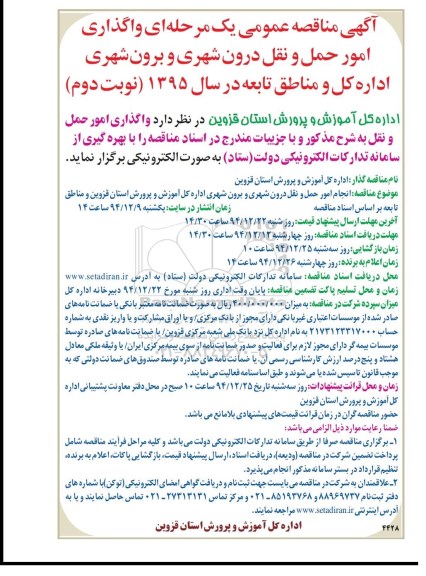 آگهی مناقصه عمومی یک مرحله‌ای واگذاری
امور حمل و نقل درون شهری و برون شهری
اداره کل و مناطق تابعه در سال ۱۳۹۵ (نوبت دوم)
اداره کل آموزش و پرورش استان قزوین در نظر دارد واگذاری امور حمل
و نقل به شرح مذکور و با جزییات مندرج در اسناد مناقصه را با بهره گیری از
سامانه تدارکات الکترونیکی دولت (ستاد) به صورت الکترونیکی برگزار نماید.
نام مناقصه گذار: اداره کل آموزش و پرورش استان قزوین
موضوع مناقصه: انجام امور حمل و نقل درون شهری و برون شهری اداره کل آموزش و پرورش استان قزوین و مناطق
تابعه بر اساس اسناد مناقصه زمان انتشار در سایت: یکشنبه ۹۴/۱۲/۹ ساعت ۱۴
آخرین مهلت ارسال پیشنهاد قیمت: روز شنبه ۹۴/۱۲/۲۲ ساعت ۱۴/۳۰
مهلت دریافت اسناد مناقصه: روز چهارشنبه ۹۴/۱۲/۱۲ ساعت ۱۴/۳۰
زمان بازگشایی: روز سه شنبه ۹۴/۱۲/۲۵ ساعت ۱۰
زمان اعلام به برنده: روز چهارشنبه ۹۴/۱۲/۲۶ ساعت ۱۴
محل دریافت اسناد مناقصه: سامانه تدارکات الکترونیکی دولت (ستاد) به آدرس www.setadiran.ir
زمان و محل تسلیم پاکت تضمین مناقصه: پایان وقت اداری روز شنبه مورخ ۹۴/۱۲/۲۲ دبیرخانه اداره کل
میزان سپرده شرکت در مناقصه: به میزان ریال به صورت ضمانت نامه معتبر بانکی یا ضمانت نامه های
صادر شده از موسسات اعتباری غیر بانکی دارای مجوز از بانک مرکزی / و یا اوراق مشارکت و یا واریز نقدی به شماره
حساب ۲۱۷۳۱۲۳۳۱۷۰۰۰ به نام اداره کل نزد بانک ملی شعبه مرکزی قزوین / یا ضمانت نامه های صادره توسط
موسسات بیمه گر دارای مجوز لازم برای فعالیت و صدور ضمانت نامه از سوی بیمه مرکزی ایران / یا وثیقه ملکی معادل
هشتاد و پنج درصد ارزش کارشناسی رسمی آن / یا ضمانت نامه های صادره توسط صندوق های ضمانت دولتی که به
موجب قانون تاسیس شده یا می شوند و طبق اساسنامه فعالیت می نمایند.
زمان و محل قرائت پیشنهادات: روز سه شنبه تاریخ ۹۴/۱۲/۲۵ ساعت ۱۰ صبح در محل دفتر معاونت پشتیبانی اداره
کل آموزش و پرورش استان قزوین
حضور مناقصه گران در زمان قرائت قیمت های پیشنهادی بلامانع می باشد.
ضمنا رعایت موارد ذیل الزامی می باشد:
۱ـ برگزاری مناقصه صرفا از طریق سامانه تدارکات الکترونیکی دولت می باشد و کلیه مراحل فرآیند مناقصه شامل
پرداخت تضمین شرکت در مناقصه (ودیعه)، دریافت اسناد، ارسال پیشنهاد قیمت، بازگشایی پاکات، اعلام به برنده،
تنظیم قرارداد در بستر سامانه مذکور انجام می پذیرد.
۲ـ علاقمندان به شرکت در مناقصه می بایست جهت ثبت نام و دریافت گواهی امضای الکترونیکی (توکن) با شماره های
دفتر ثبت نام ۸۸۹۶۹۷۳۷ و ۸۵۱۹۳۷۶۸ ـ ۰۲۱ و مرکز تماس ۲۷۳۱۳۱۳۱ ـ ۰۲۱ تماس حاصل نمایند و یا به
آدرس اینترنتی www.setadiran.ir مراجعه نمایند.
اداره کل آموزش و پرورش استان قزوین
۴۴۲۸